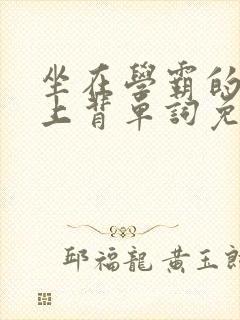 坐在學霸的
上背單詞免
邱福龍 黃玉郎